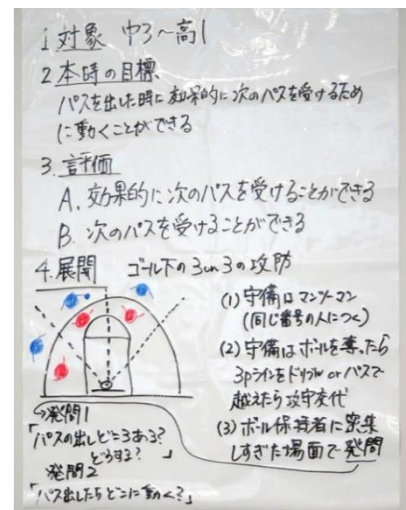 1. 対象 中3〜高1
2 本時の目標
パスを出した時に効果的に次のパスを受けるため
に動くことができる
3. 評価
A. 効果的に次のパスを受けることができる
B. 次のパスを受けることができる
4. 展開 ゴール下の3on3の攻防
(1) 守備はマンツーマン
(同じ番号の人につく)
(2) 守備はボールを奪ったら
3pラインをドリブル or パスで
越えたら攻守交代
(3) ボール保持者に密集
しすぎた場面で発問
発問1
「パスの出しどころある?
どうする?」
発問2
「パス出したらどこに動く?」